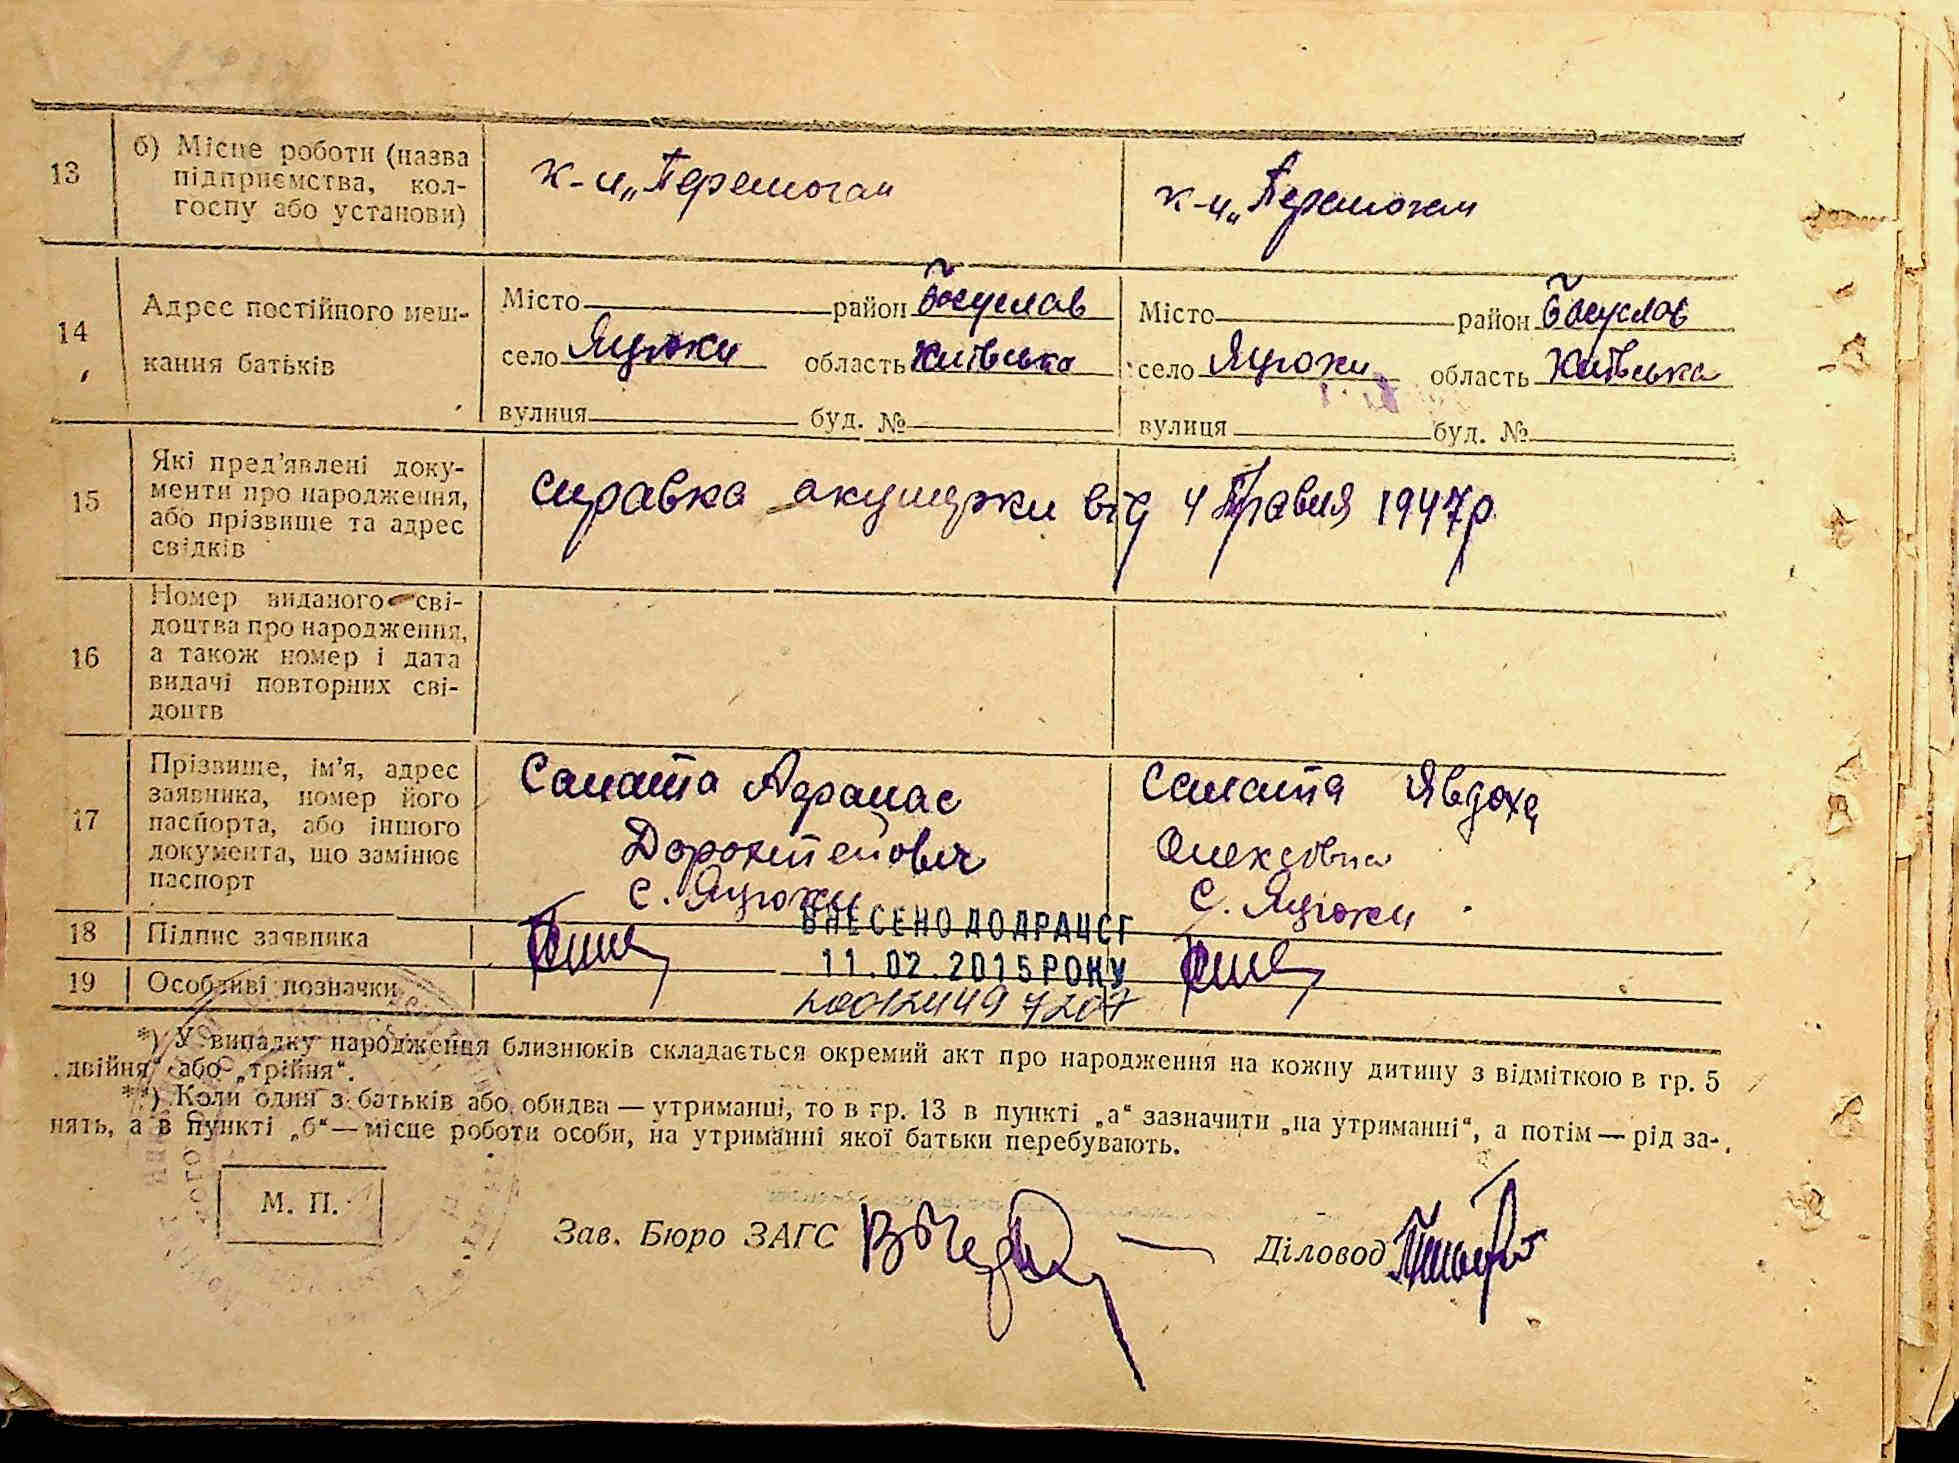 13
б) Місце роботи (назва
підприємства, кол-
госпу або установи)
к-п „Перемога"
к-п „Перемога"
14
Адрес постійного меш-
кання батьків
Місто район Богуслав
село Яцюки область Київська
вулиця буд. №
Місто район Богуслав
село Яцюки область Київська
вулиця буд. №
15
Які пред'явлені доку-
менти про народження,
або прізвище та адрес
свідків
справка акушерки від 4 Травня 1947р.
16
Номер виданого сві-
доцтва про народження,
а також номер і дата
видачі повторних сві-
доцтв
17
Прізвище, ім'я, адрес
заявника, номер його
паспорта, або іншого
документа, що замінює
паспорт
Самата Афанас
Дорохтейович
с. Яцюки
Самата Явдоха
Олексіовна
с. Яцюки
18 Підпис заявника
ВНЕСЕНО ДО ДРАЦСГ
11.02.2015 РОКУ
19 Особливі позначки
00012449 7207
*) У випадку народження близнюків складається окремий акт про народження на кожну дитину з відміткою в гр. 5
„двійня" або „трійня".
**) Коли один з батьків або обидва — утриманці, то в гр. 13 в пункті „а" зазначити „на утриманні", а потім — рід за-
нять, а в пункті „б" — місце роботи особи, на утриманні якої батьки перебувають.
М. П.
Зав. Бюро ЗАГС
Діловод